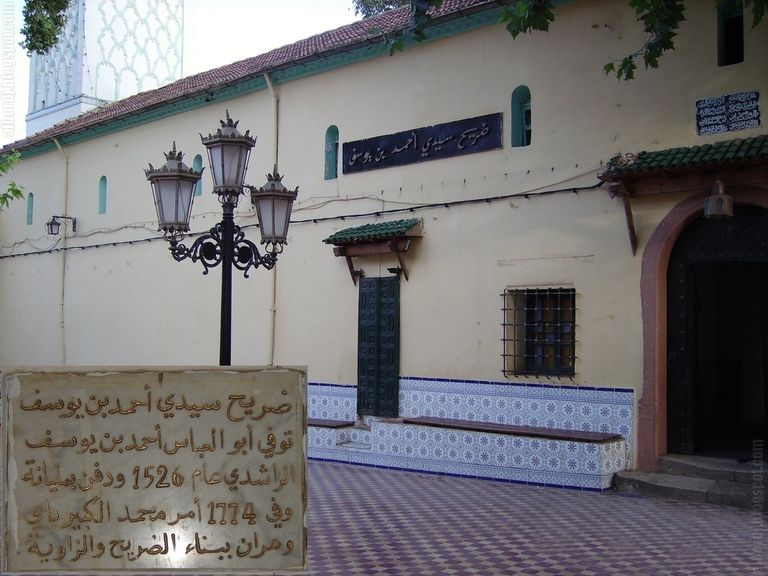 ضريح سيدي أحمد بن يوسف
ضريح سيدي أحمد بن يوسف
توفي أبو العباس أحمد بن يوسف
الراشدي عام 1526 ودفن بمليانة
وفي 1774 أمر محمد الكبير باي
وهران ببناء الضريح والزاوية